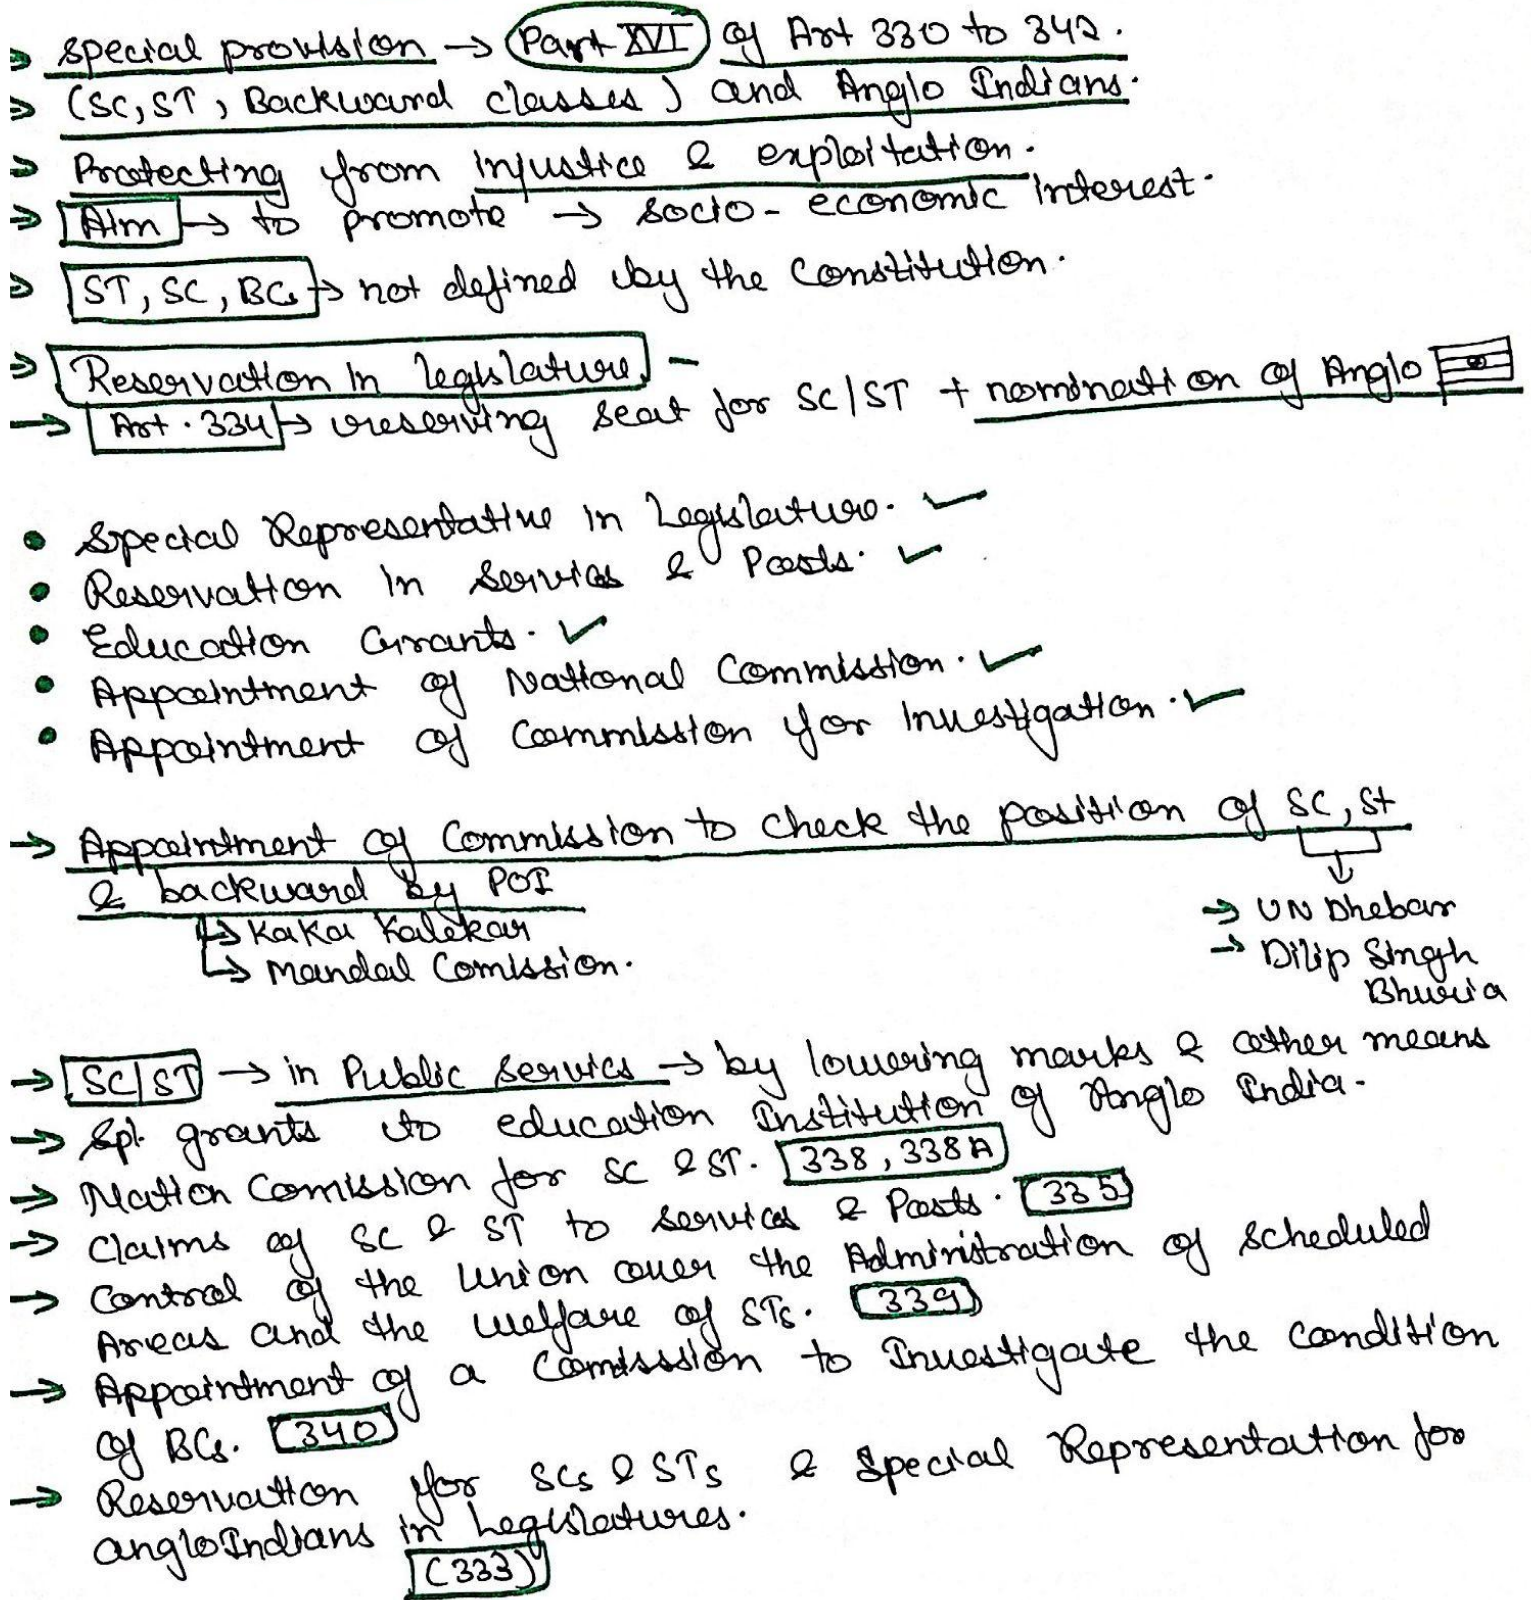 → special provision → (Part XVI) of Art 330 to 342.
→ (SC, ST, Backward classes) and Anglo Indians.
→ Protecting from injustice & exploitation.
→ Aim → to promote → socio-economic interest.
→ ST, SC, BCs → not defined by the constitution.
→ Reservation in legislature -
→ Art. 334 → reserving seat for SC/ST + nomination of Anglo
• Special Representative in Legislature. ✓
• Reservation in Services & Posts. ✓
• Education Grants. ✓
• Appointment of National Commission. ✓
• Appointment of Commission for Investigation. ✓
→ Appointment of Commission to check the position of SC, St
& backward by POI
→ Kaka Kalekar
→ Mandal Comission.
→ UN Dhebar
→ Dilip Singh
Bhuria
→ SC/ST → in Public Services → by lowering marks & other means
→ Spl. grants to education Institution of Anglo India.
→ Nation Comission for SC & ST. 338, 338A
→ Claims of SC & ST to services & Posts. 335
→ Control of the Union over the Administration of scheduled
Areas and the welfare of STs. 339
→ Appointment of a Comission to Investigate the condition
of BCs. 340
→ Reservation for SCs & STs & Special Representation for
angloIndians in Legislatures.
(333)